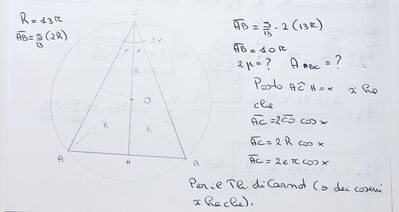 R = 13k
AB = 5/13 (2R)
C
2x
x x
R
O
R
R
A
H
B
AB = 5/13 · 2 (13k)
AB = 10k
2p = ? A ABC = ?
Posto AĈH = x si ha
che
AC = 2CO cos x
AC = 2R cos x
AC = 26k cos x
Per il Th. di Carnot (o dei coseni
si ha che).